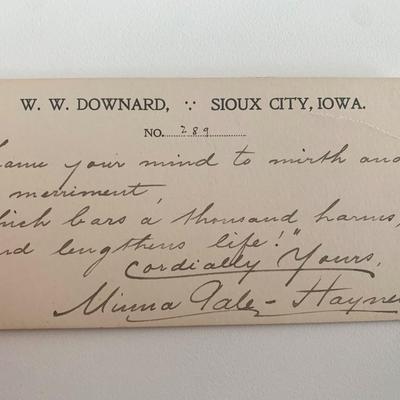 W. W. DOWNARD, ∵ SIOUX CITY, IOWA.
NO. 289
ame your mind to mirth and
merriment,
hich bars a thousand harms,
nd lengthens life!"
Cordially Yours,
Minna Gale-Hayne